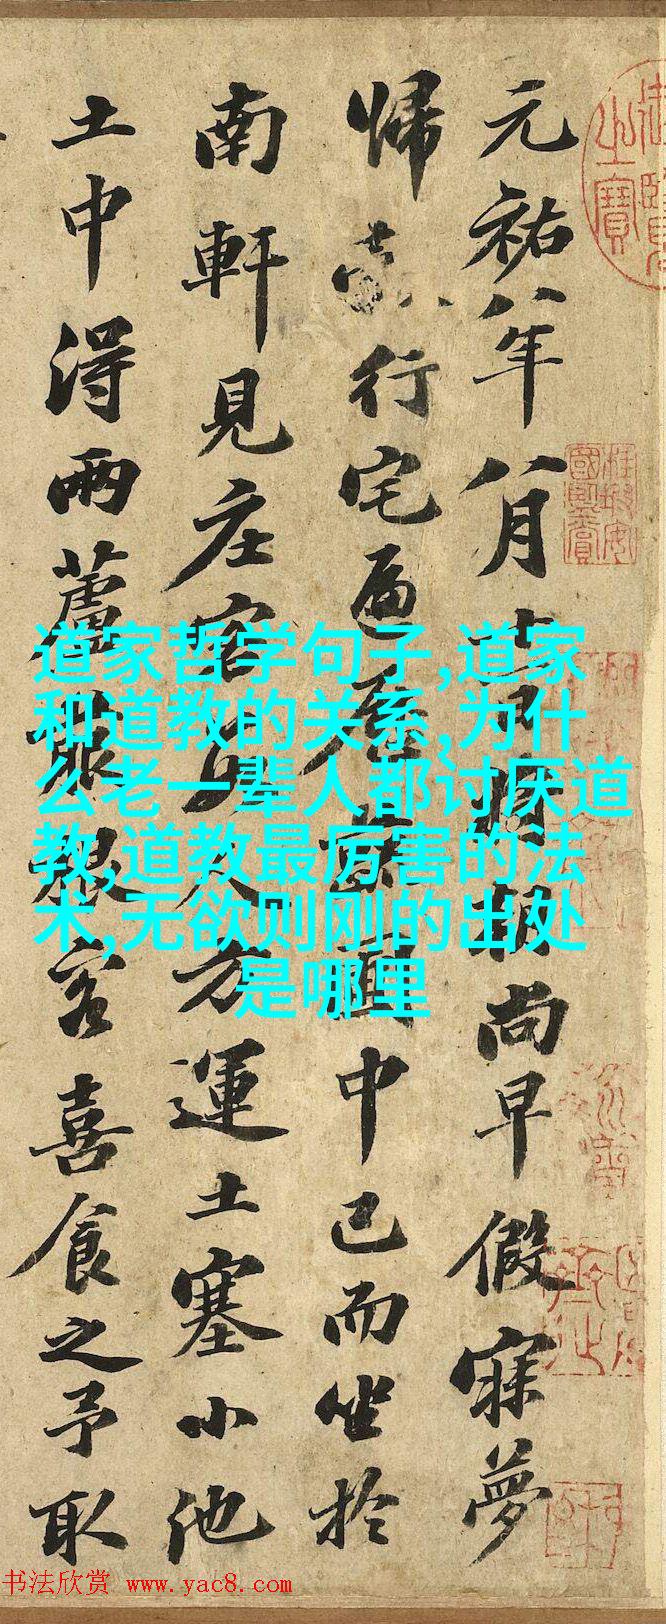 元祐八年八月十一日將朝尚早假寐夢
歸縠行宅遍歷蔬園中已而坐於
南軒見庄客數人方運土塞小池
土中得兩蘆菔根客喜食之予取
道家哲学句子,道家
和道教的关系,为什
么老一辈人都讨厌道
教,道教最厉害的法
术,无欲则刚的出处
是哪里
书法欣赏 www.yac8.com